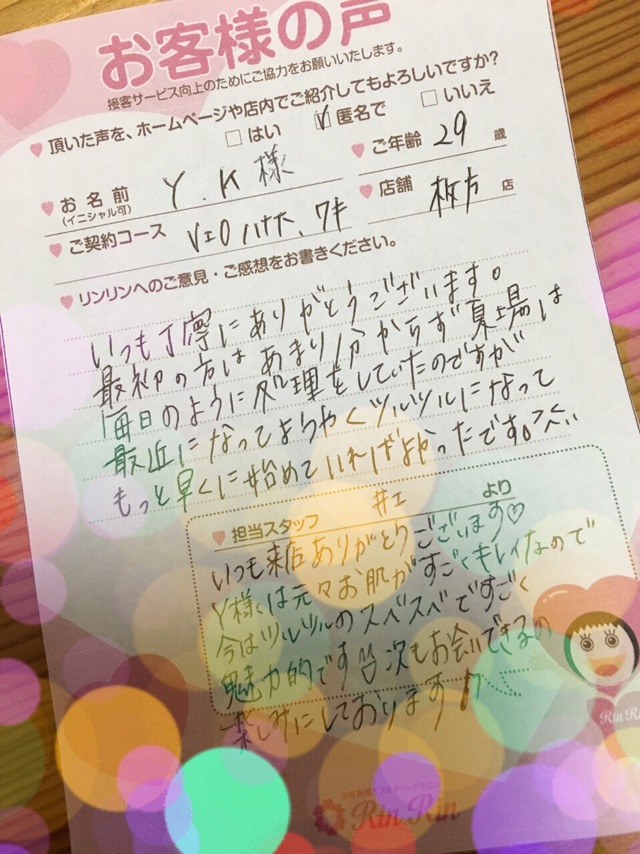 お客様の声
接客サービス向上のためにご協力をお願いいたします。
頂いた声を、ホームページや店内でご紹介してもよろしいですか?
はい 匿名で いいえ
お名前 Y.K様 ご年齢 29 歳
(イニシャル可)
ご契約コース VIOハナ下、ワキ 店舗 枚方 店
リンリンへのご意見・ご感想をお書きください。
いつも丁寧にありがとうございます。
最初の方はあまり分からず夏場は
毎日のように処理をしていたのですが
最近になってようやくツルツルになって
もっと早くに始めていればよかったです。
担当スタッフ 井工 より
いつも来店ありがとうございます♡
Y様は元々お肌がすごくキレイなので
今はツルツルのスベスベですごく
魅力的です 次もお会いできるの
楽しみにしております
RinRin
RinRin